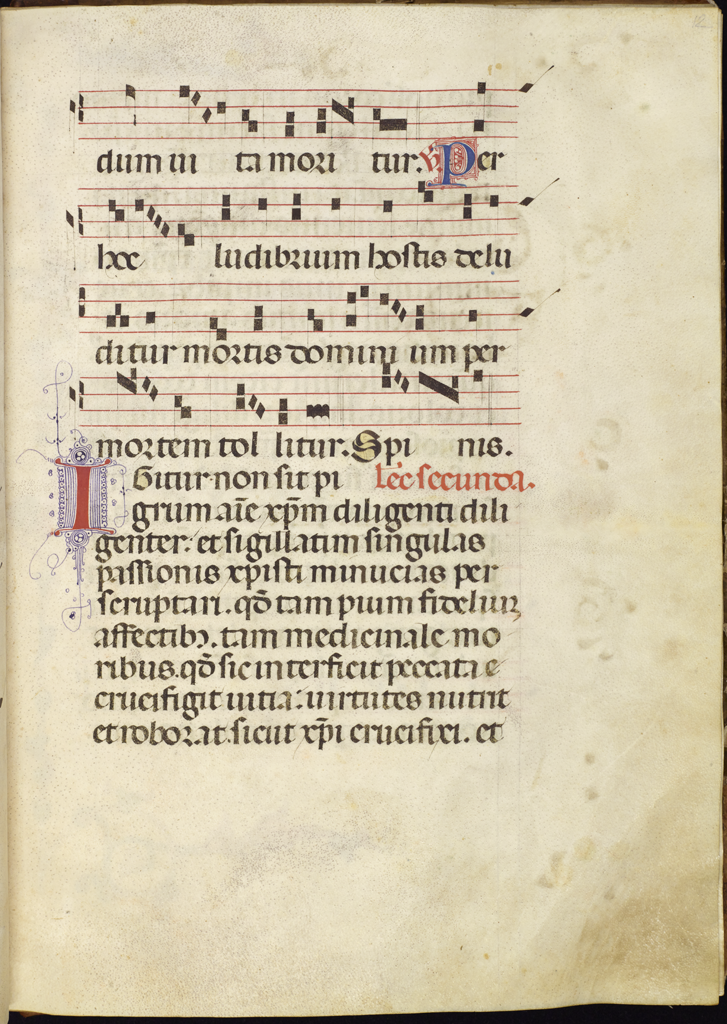 12
dum ui ta mori tur. ℣ Per
hoc ludibrium hostis delu
ditur mortis domini um per
mortem tol litur. Spi nis.
IGitur non sit pi lec̄ secunda.
grum aīe xp̄m diligenti dili
genter: et sigillatim singulas
passionis xpisti minucias per
scruptari. qd̄ tam pium fideliuꝝ
affectibꝫ. tam medicinale mo
ribus. qd̄ sic interficit peccata e
crucifigit uitia: uirtutes nutrit
et roborat. sicut xp̄i crucifixi. et